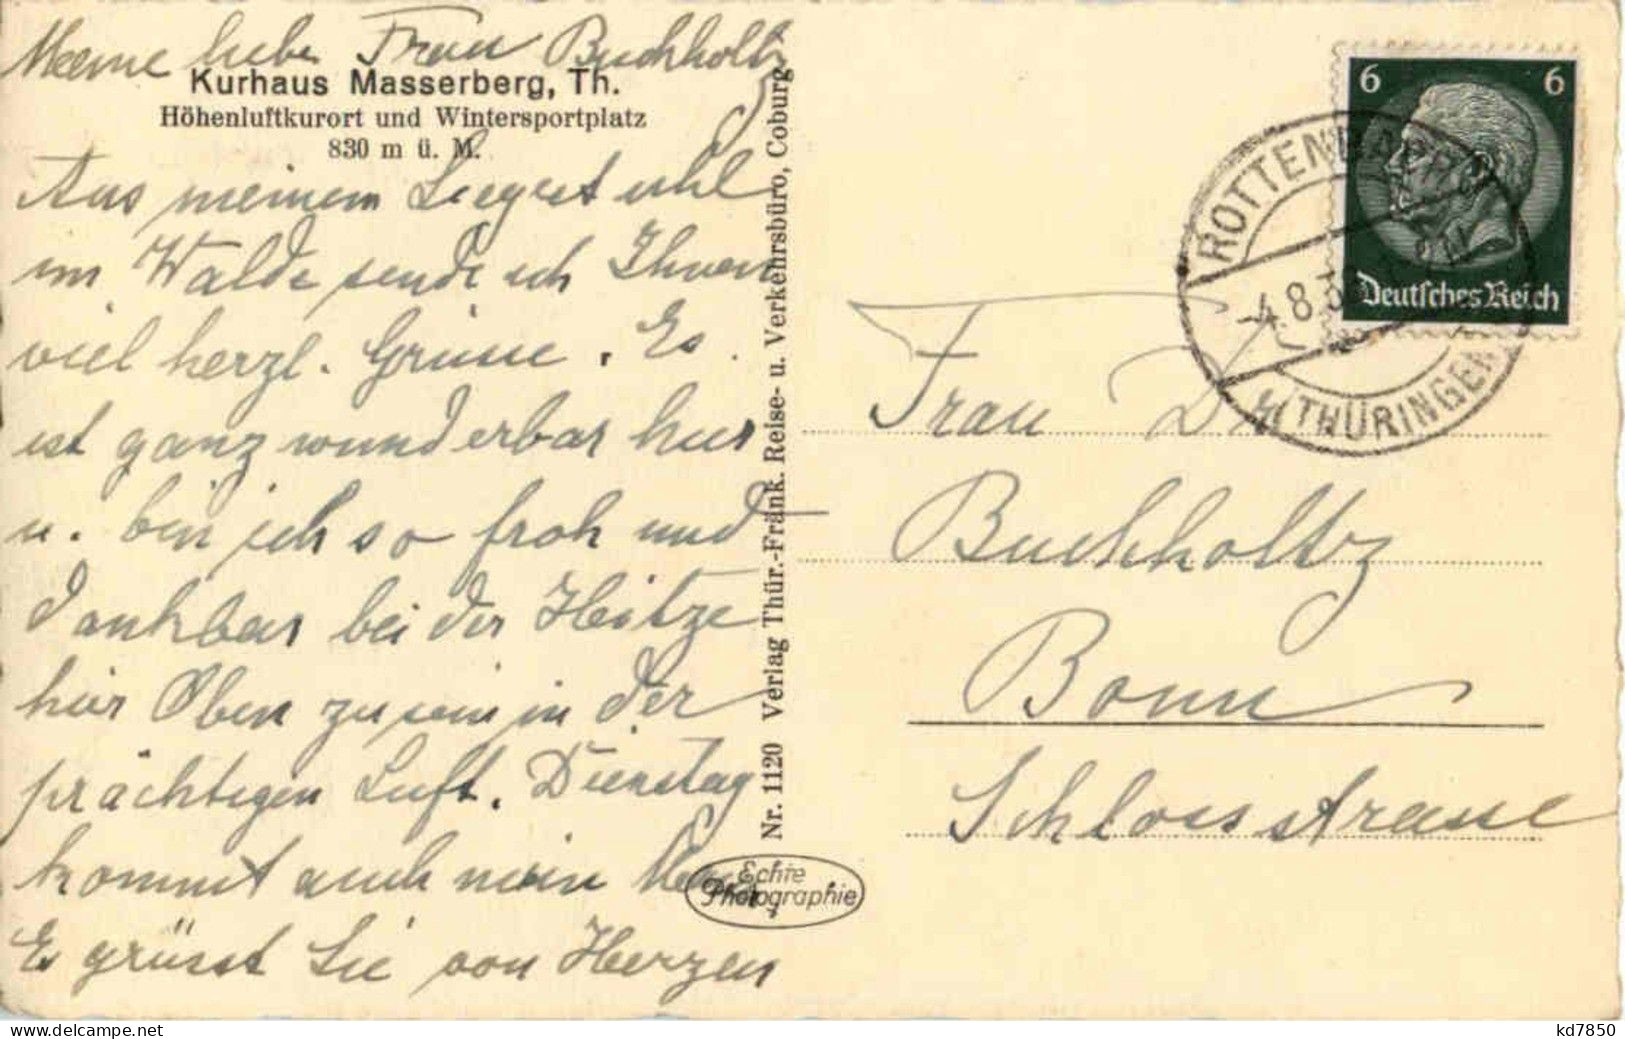 Meine liebe Frau Buchholtz
Kurhaus Masserberg, Th.
Höhenluftkurort und Wintersportplatz
830 m ü. M.
Aus meinem Liegestuhl
im Walde sende ich Ihnen
viel herzl. Grüsse. Es
ist ganz wunderbar hier
u. bin ich so froh und
dankbar bei der Hitze
hier Oben zu sein in der
prächtigen Luft. Dienstag
kommt auch mein
Es grüsst Sie von Herzen
Nr. 1120 Verlag Thür.-Fränk. Reise- u. Verkehrsbüro, Coburg
Echte
Photographie
6 6
Deutsches Reich
ROTTENBACH
-4.8.3
THÜRINGEN
Frau Dr
Buchholtz
Bonn
Schlossstrasse
kd7850